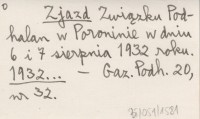 Zjazd Związku Pod-
halan w Poroninie w dniu
6 i 7 sierpnia 1932 roku.
1932... – Gaz. Podh. 20,
nr 32.